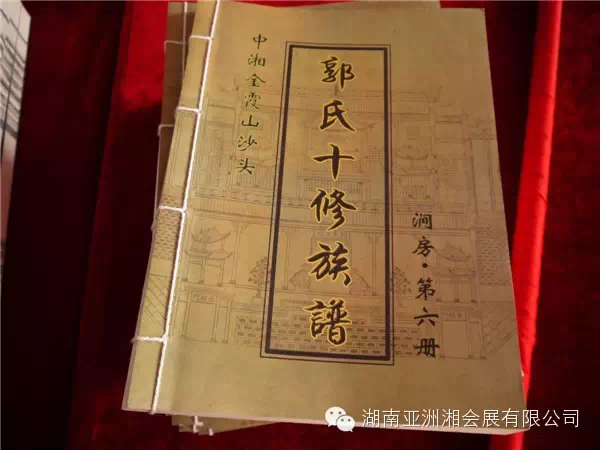 中湘金霞山沙头
郭氏十修族譜
涧房·第六册
湖南亚洲湘会展有限公司